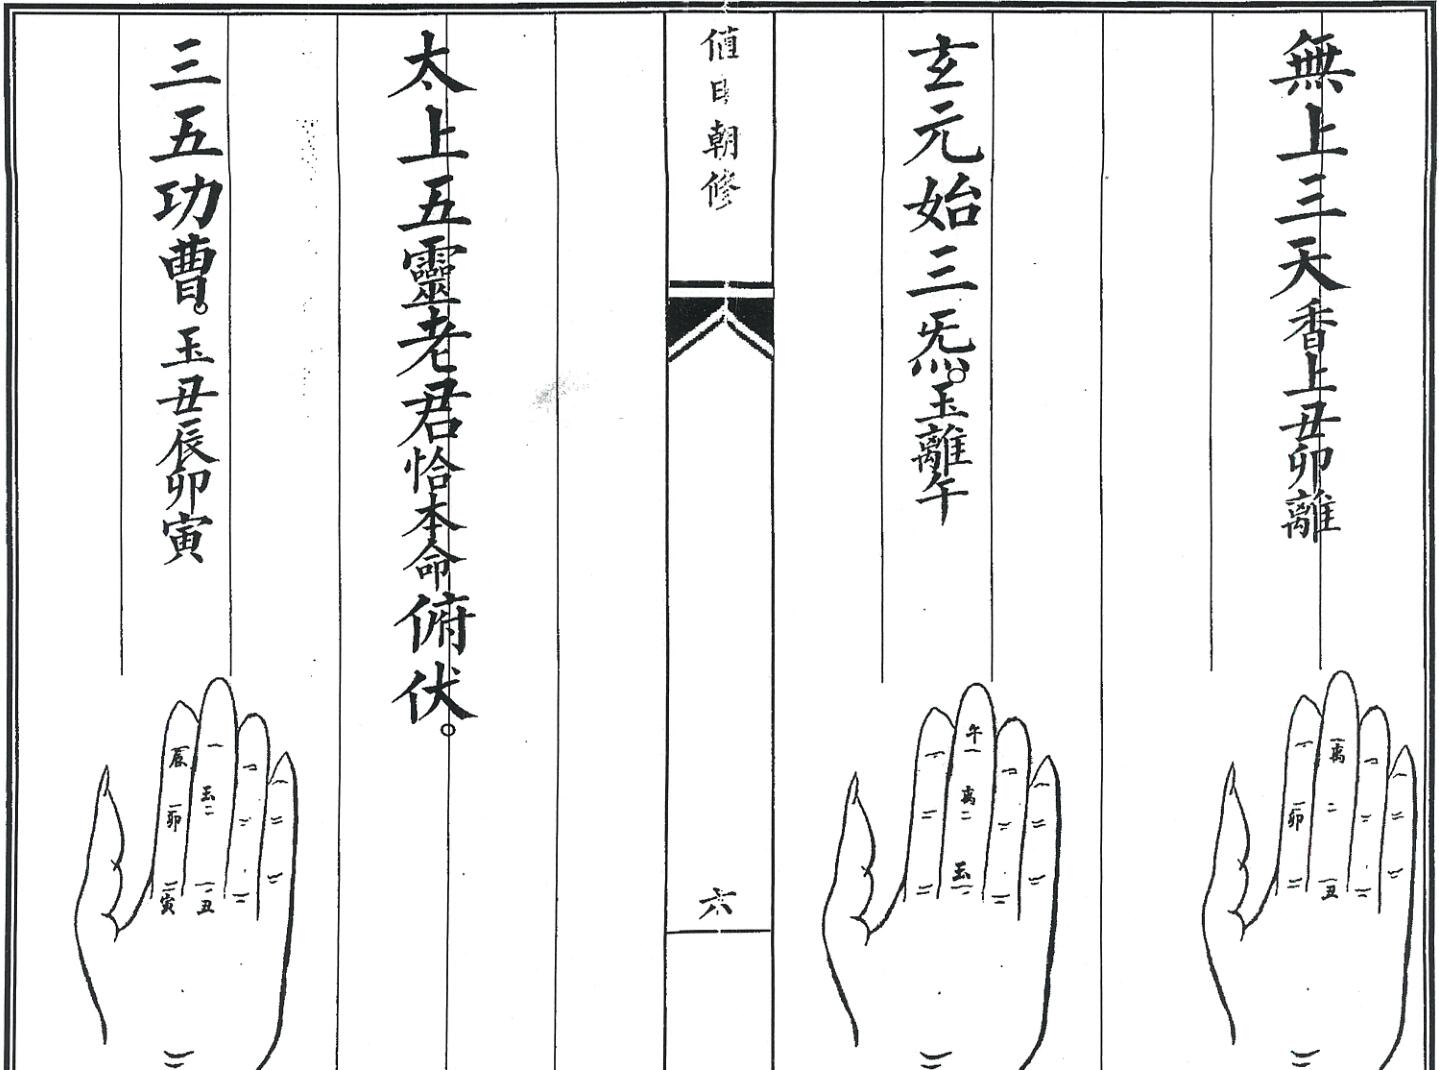 無上三天香上丑卯離
離
卯
丑
玄元始三炁。玉離午
午
离
玉
值日朝修
六
太上五靈老君恰本命俯伏。
三五功曹。玉丑辰卯寅
辰
玉
卯
寅
丑